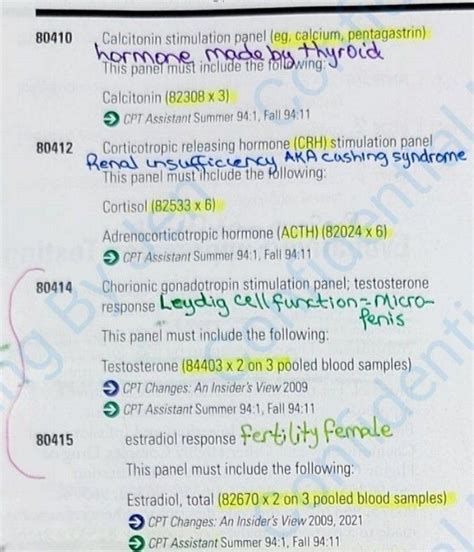 80410 Calcitonin stimulation panel (eg, calcium, pentagastrin)
hormone made by thyroid
This panel must include the following:
Calcitonin (82308 x 3)
CPT Assistant Summer 94:1, Fall 94:11
80412 Corticotropic releasing hormone (CRH) stimulation panel
Renal insufficiency AKA cushing syndrome
This panel must include the following:
Cortisol (82533 x 6)
Adrenocorticotropic hormone (ACTH) (82024 x 6)
CPT Assistant Summer 94:1, Fall 94:11
80414 Chorionic gonadotropin stimulation panel; testosterone
response Leydig cell function = Micro-
penis
This panel must include the following:
Testosterone (84403 x 2 on 3 pooled blood samples)
CPT Changes: An Insider's View 2009
CPT Assistant Summer 94:1, Fall 94:11
80415 estradiol response fertility female
This panel must include the following:
Estradiol, total (82670 x 2 on 3 pooled blood samples)
CPT Changes: An Insider's View 2009, 2021
CPT Assistant Summer 94:1, Fall 94:11